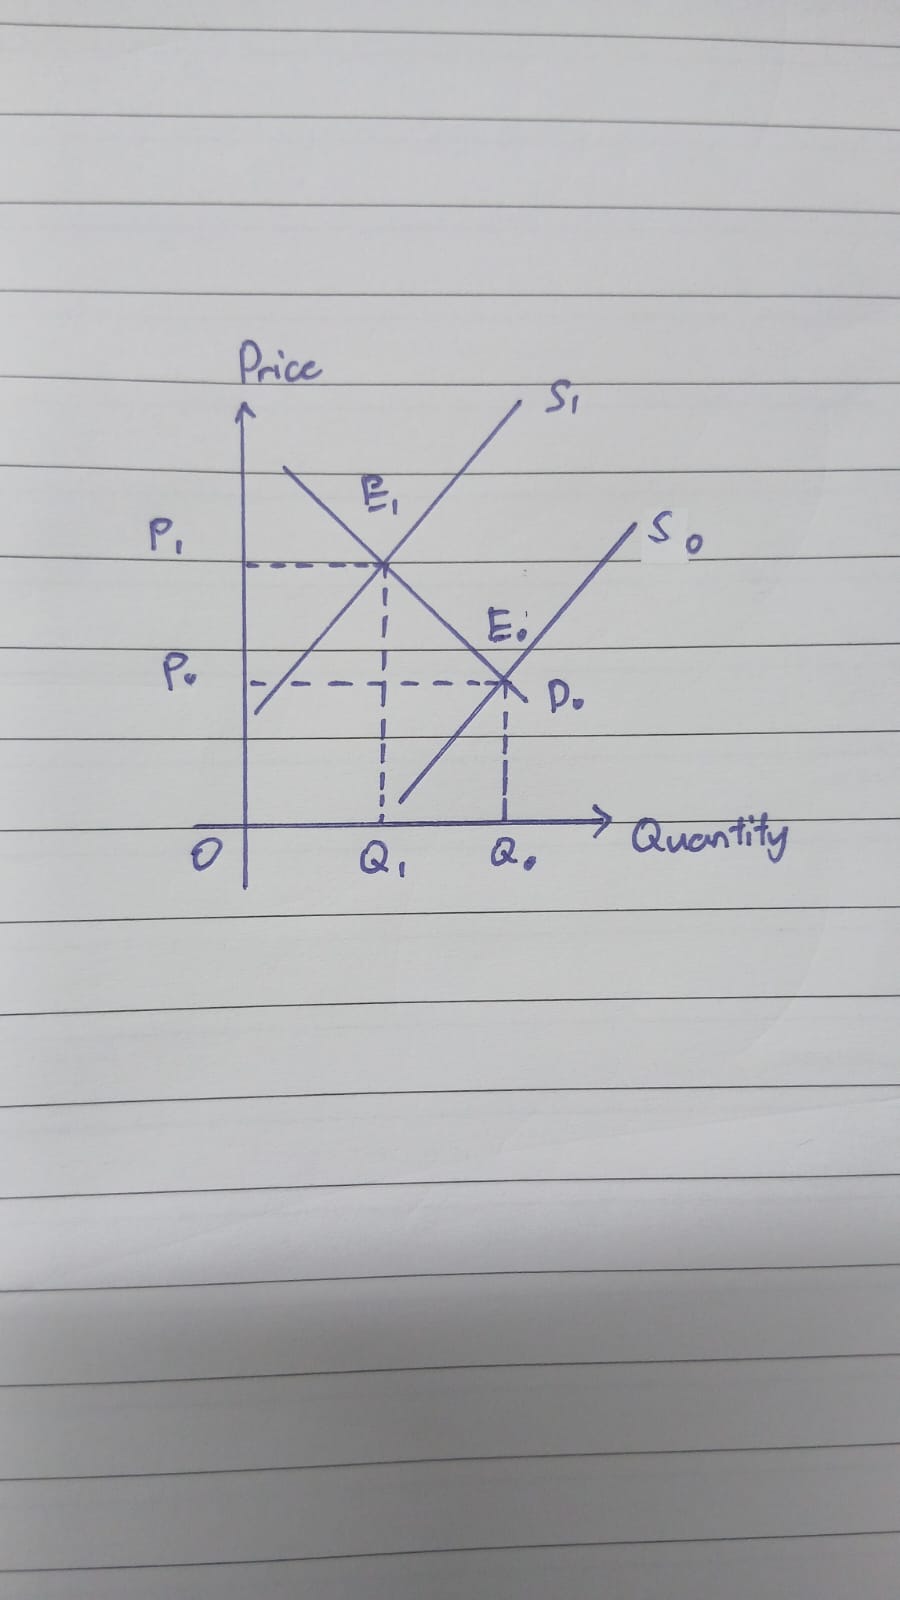 Price
S₁
E₁
P₁
S₀
E₀
P₀
D₀
O
Q₁
Q₀
Quantity